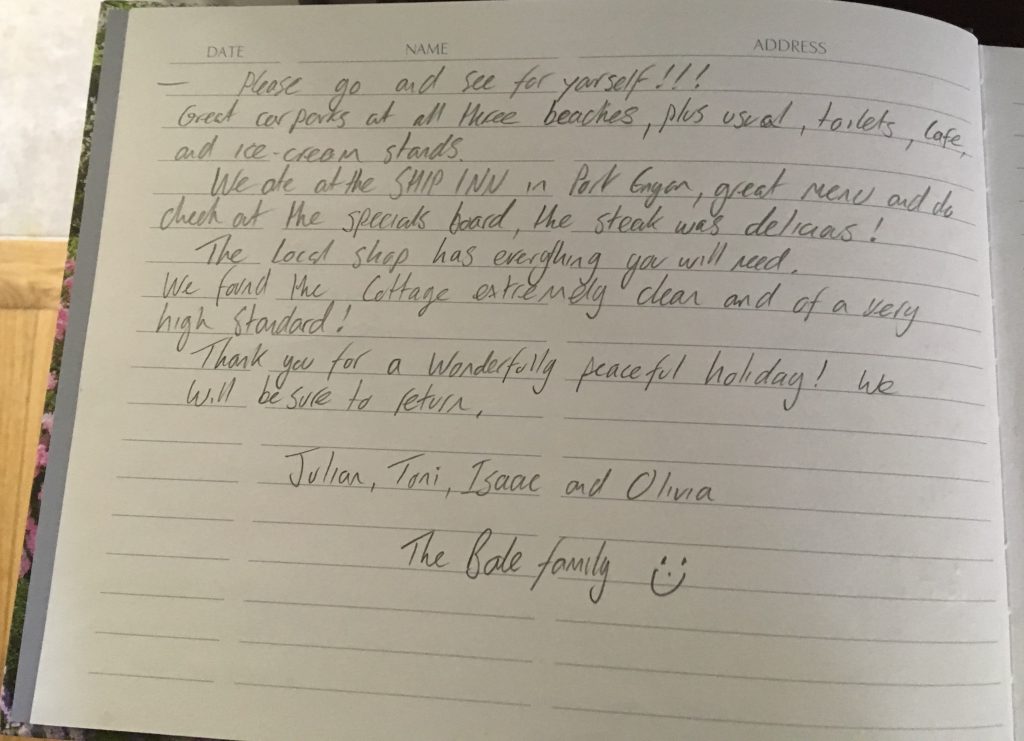 DATE NAME ADDRESS
— Please go and see for yourself!!!
Great car parks at all three beaches, plus usual, toilets, cafe,
and ice-cream stands.
We ate at the SHIP INN in Port Eynon, great menu and do
check out the specials board, the steak was delicious!
The local shop has everything you will need.
We found the Cottage extremely clean and of a very
high standard!
Thank you for a Wonderfully peaceful holiday! We
will be sure to return.
Julian, Toni, Isaac and Olivia
The Bale family